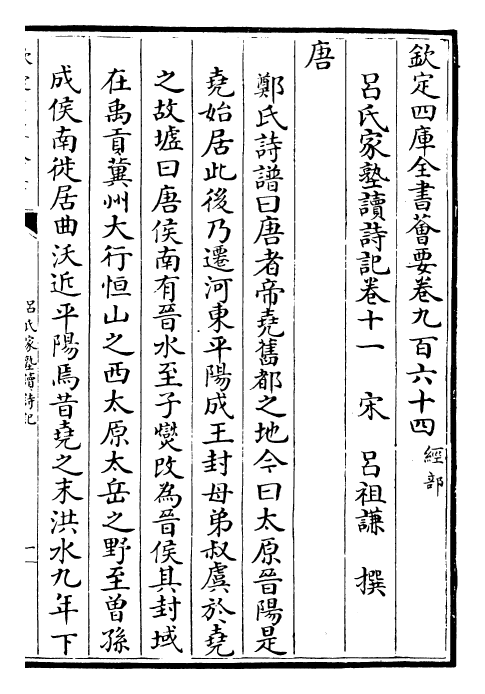 欽定四庫全書薈要卷九百六十四 經部
呂氏家塾讀詩記卷十一 宋 呂祖謙 撰
唐
鄭氏詩譜曰唐者帝堯舊都之地今曰太原晉陽是
堯始居此後乃遷河東平陽成王封母弟叔虞於堯
之故墟曰唐侯南有晉水至子燮改為晉侯其封域
在禹貢冀州大行恒山之西太原太岳之野至曾孫
成侯南徙居曲沃近平陽焉昔堯之末洪水九年下
呂氏家塾讀詩記
一